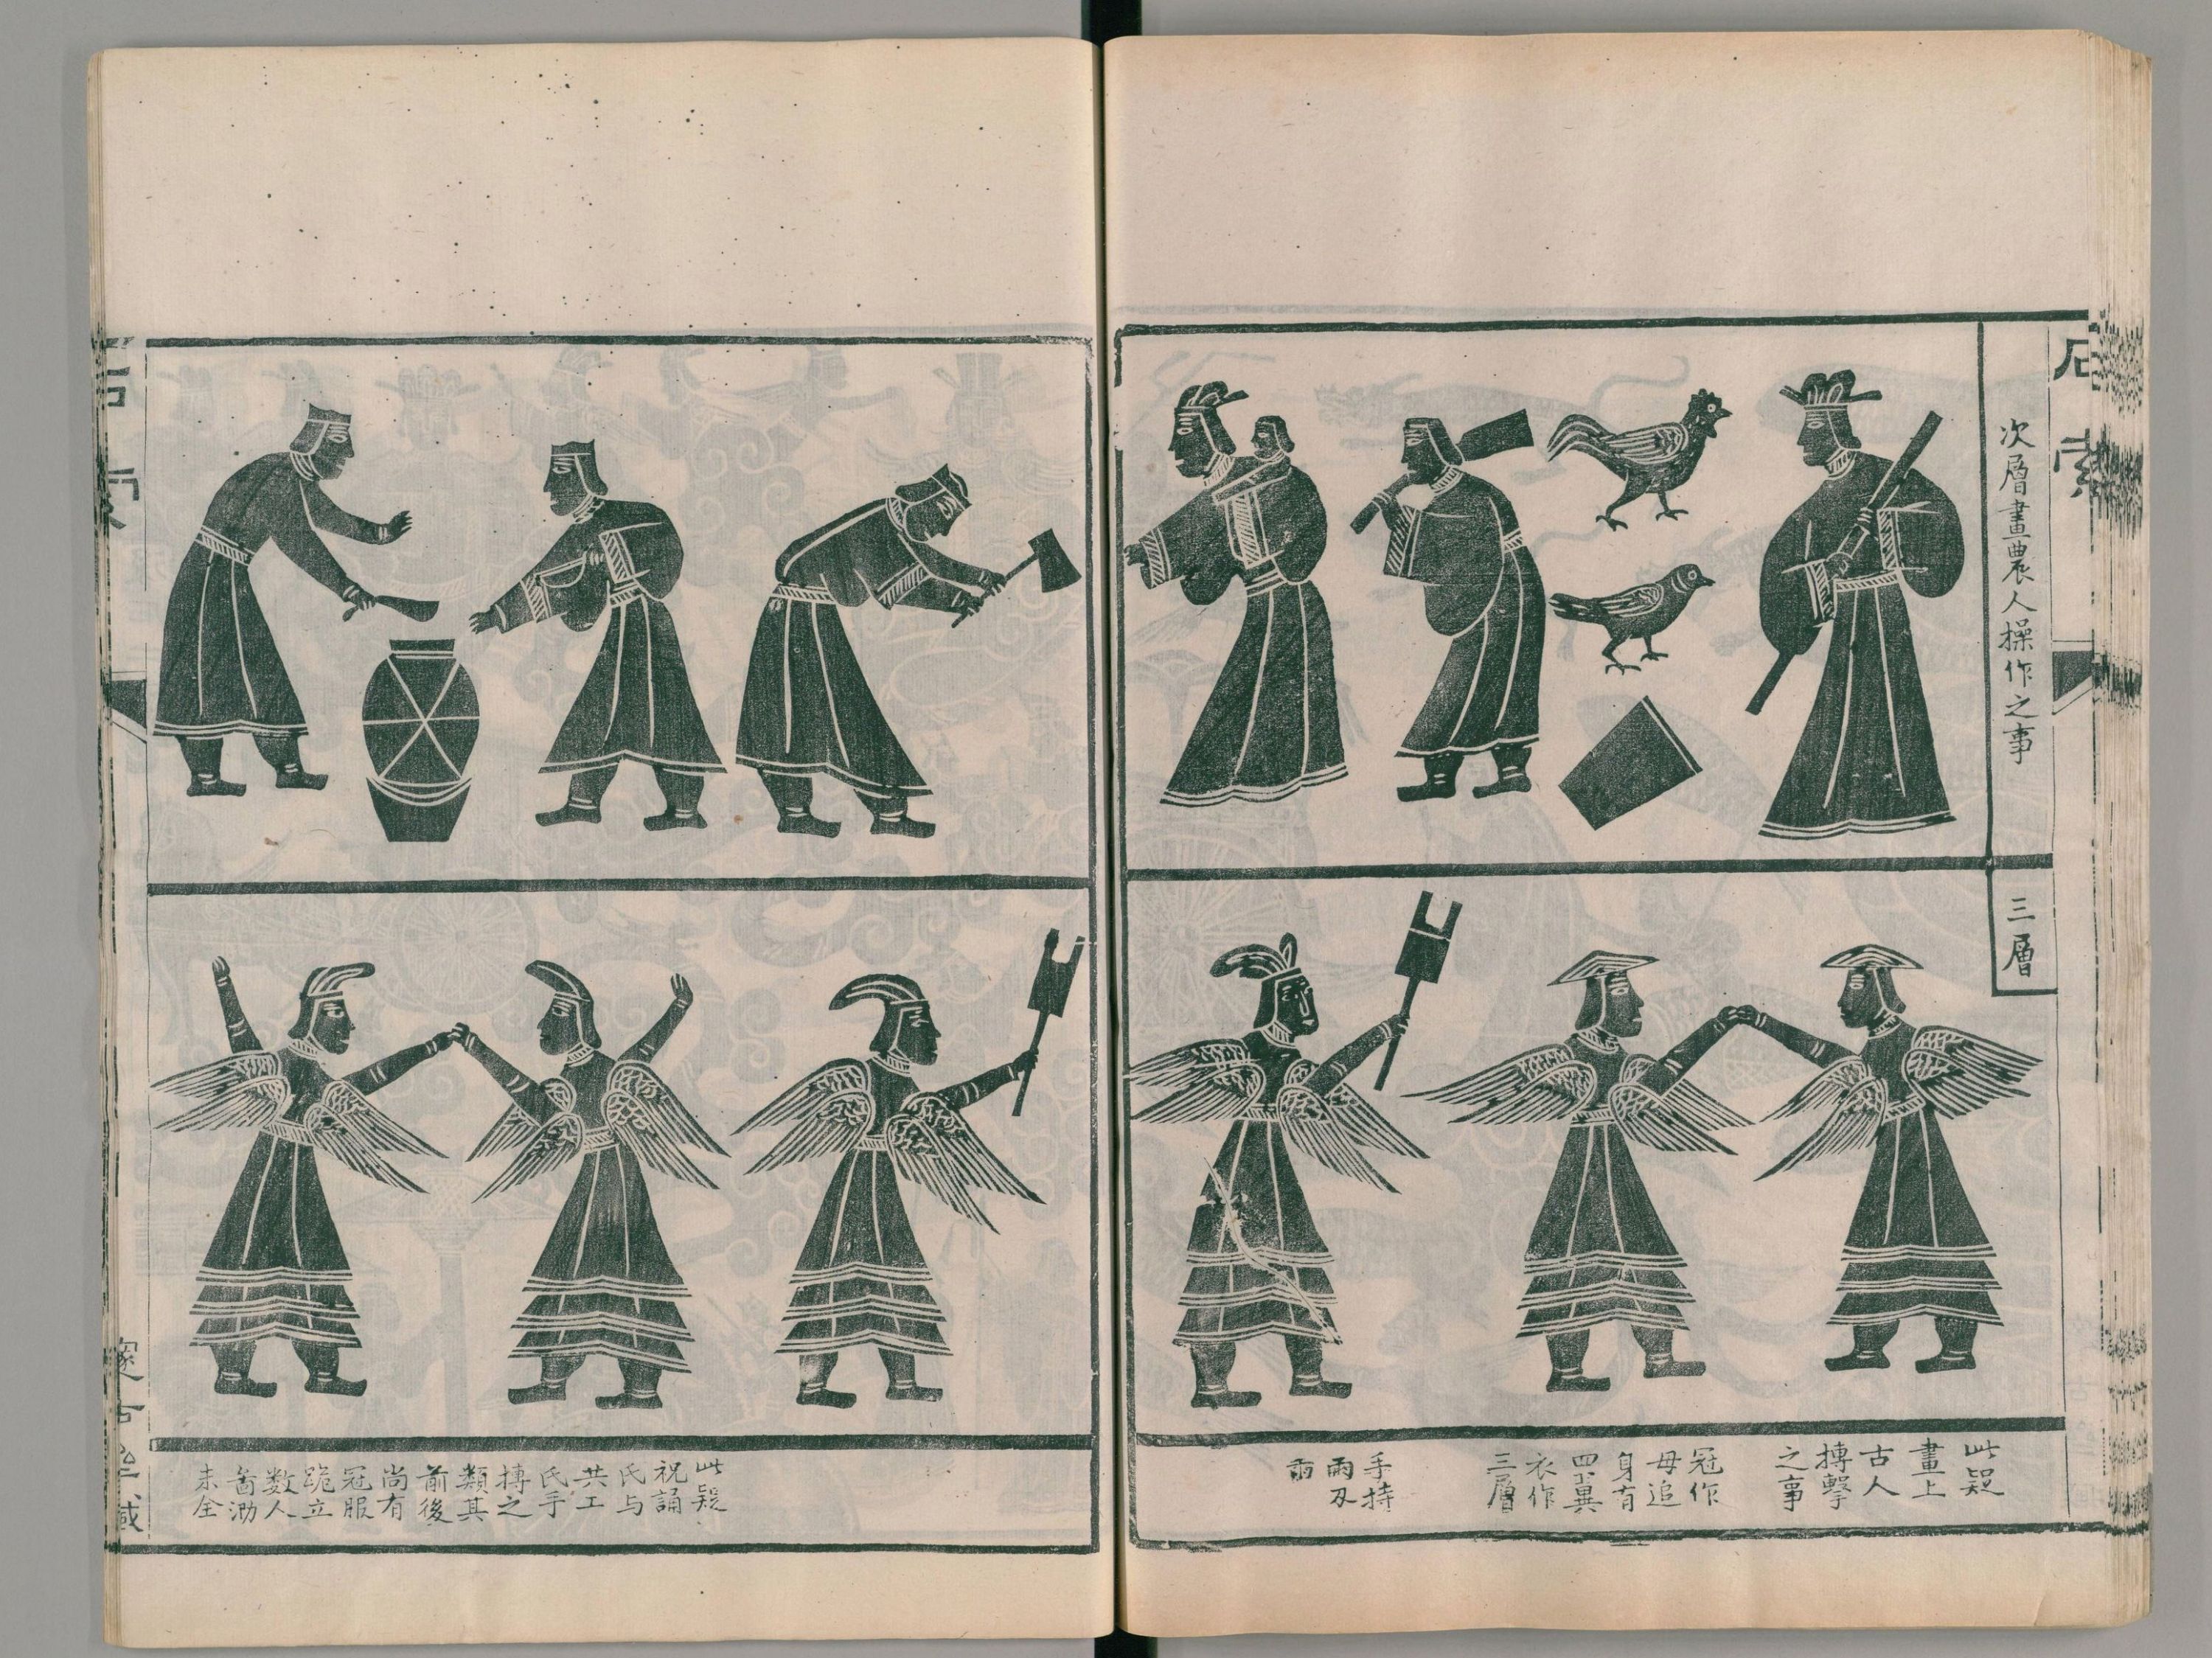 石索
次層畫農人操作之事
三層
此疑
畫上
古人
搏擊
之事
冠作
母追
身有
四翼
衣作
三層
手持
兩刃
此疑
祝誦
氏与
共工
氏手
搏之
類其
前後
尚有
冠服
跪立
数人
啚泐
未全
石索